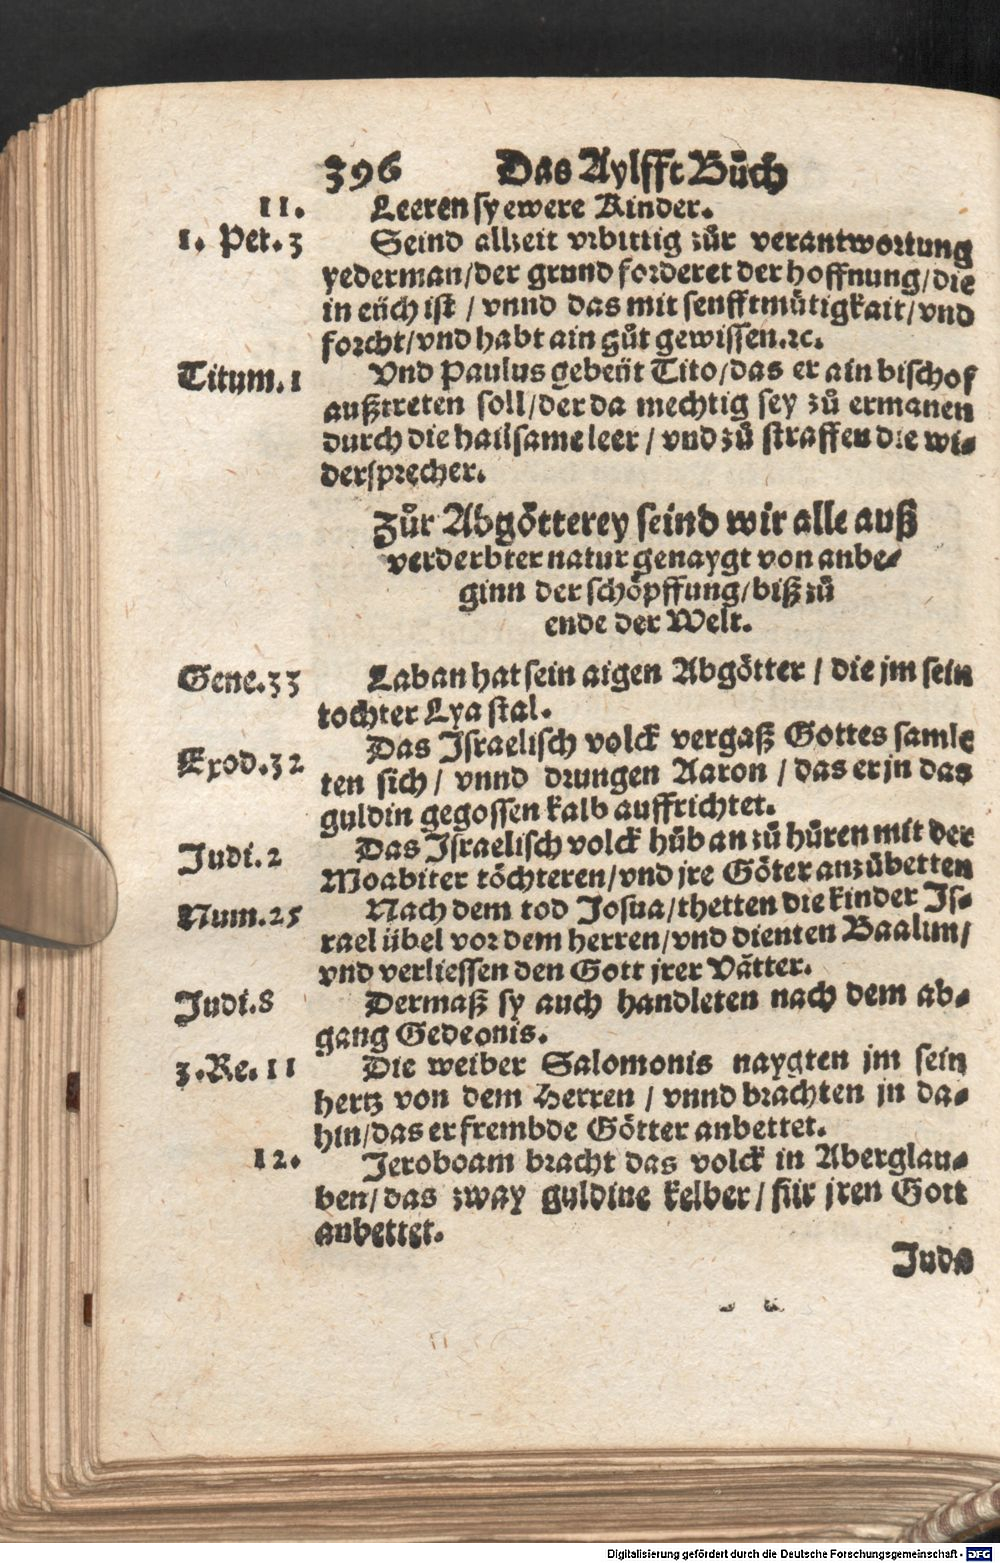 396 Das Aylfft Bůch
11. Leeren sy ewere Kinder.
1. Pet. 3 Seind allzeit vrbittig zůr verantwortung
yederman/der grund forderet der hoffnung/die
in eüch ist / vnnd das mit senfftmůtigkait/vnd
forcht/vnd habt ain gůt gewissen.ꝛc.
Titum. 1 Vnd Paulus gebeüt Tito/das er ain bischof
außtreten soll/der da mechtig sey zů ermanen
durch die hailsame leer / vnd zů straffen die wi-
dersprecher.
Zůr Abgötterey seind wir alle auß
verderbter natur genaygt von anbe-
ginn der schöpffung/biß zů
ende der Welt.
Gene.33 Laban hat sein aigen Abgötter / die jm sein
tochter Lya stal.
Exod.32 Das Israelisch volck vergaß Gottes samle
ten sich / vnnd drungen Aaron / das er jn das
guldin gegossen kalb auffrichtet.
Judi.2 Das Israelisch volck hůb an zů hůren mit der
Moabiter töchteren/vnd jre Göter anzůbetten
Num.25 Nach dem tod Josua/thetten die kinder Is-
rael übel vor dem herren/vnd dienten Baalim/
vnd verliessen den Gott jrer Vätter.
Judi.8 Dermaß sy auch handleten nach dem ab-
gang Gedeonis.
3.Re. 11 Die weiber Salomonis naygten jm sein
hertz von dem Herren / vnnd brachten jn da-
hin/das er frembde Götter anbettet.
12. Jeroboam bracht das volck in Aberglau-
ben/das zway guldine kelber / für jren Gott
anbettet.
Juda
Digitalisierung gefördert durch die Deutsche Forschungsgemeinschaft - DFG